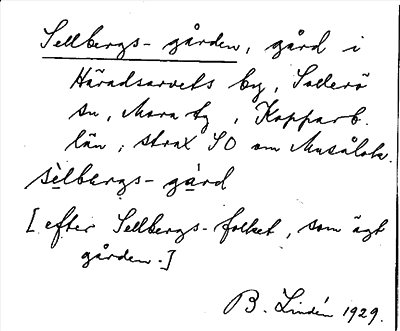 Sellbergs-gården, gård i
Häradsarvets by, Sollerö
sn, Mora tg, Kopparb.
län; strax SO om
sèlbergs-gàrd
[efter Sellbergs-folket, som ägt
gården.]
B. Lindén 1929.